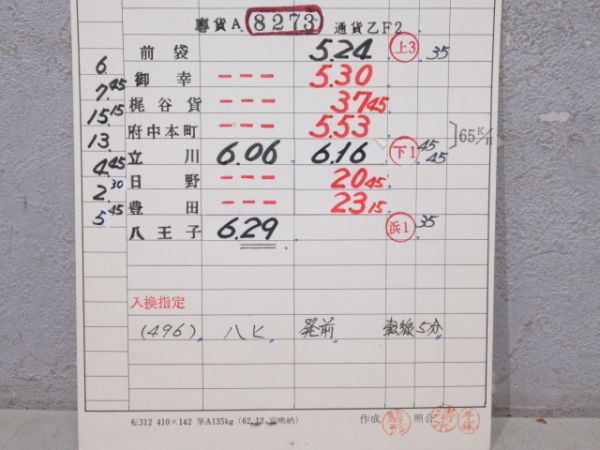 專貨A 8273 通貨乙F2
前袋 5.24 上3 35
6.
御幸 --- 5.30
7.45
梶谷貨 --- 3745
15.15
府中本町 --- 5.53 65K/H
13.
立川 6.06 6.16 下1 45 45
4.45
日野 --- 2045
2.30
豊田 --- 2315
5.45
八王子 6.29 浜1 35
入換指定
(496) 八ヒ 発前 5分
転312 410×142 箏A135kg (62.12. 納)
作成 照合